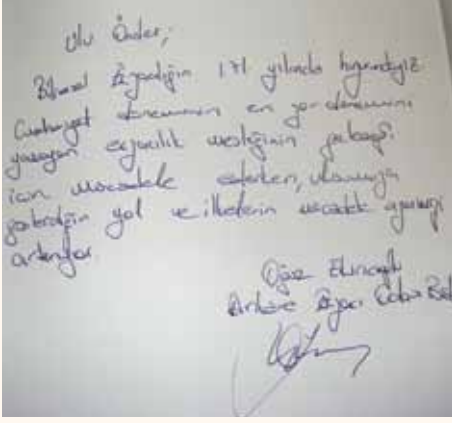 Ulu Önder;
Bilimsel Eczacılığın 171 yılında huzurundayız
Cumhuriyet döneminin en zor dönemini
yaşayan eczacılık mesleğinin geleceği
için mücadele ederken, ulusumuza
gösterdiğin yol ve ilkelerin mücadele azmimizi
artırıyor
Oğuz Ekincioğlu
Ankara Eczacı Odası Baş